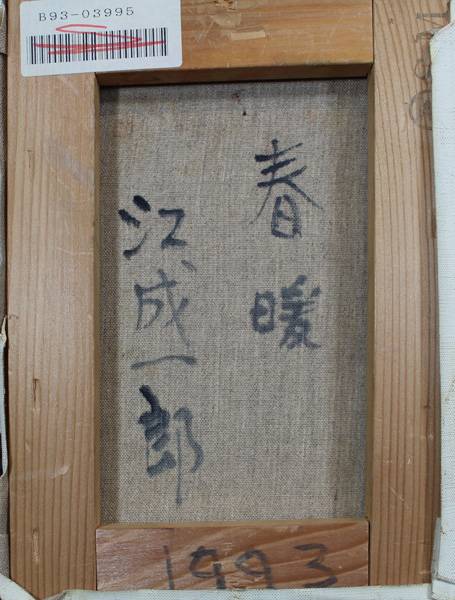 B93-03995
春暖
江成一郎
1993